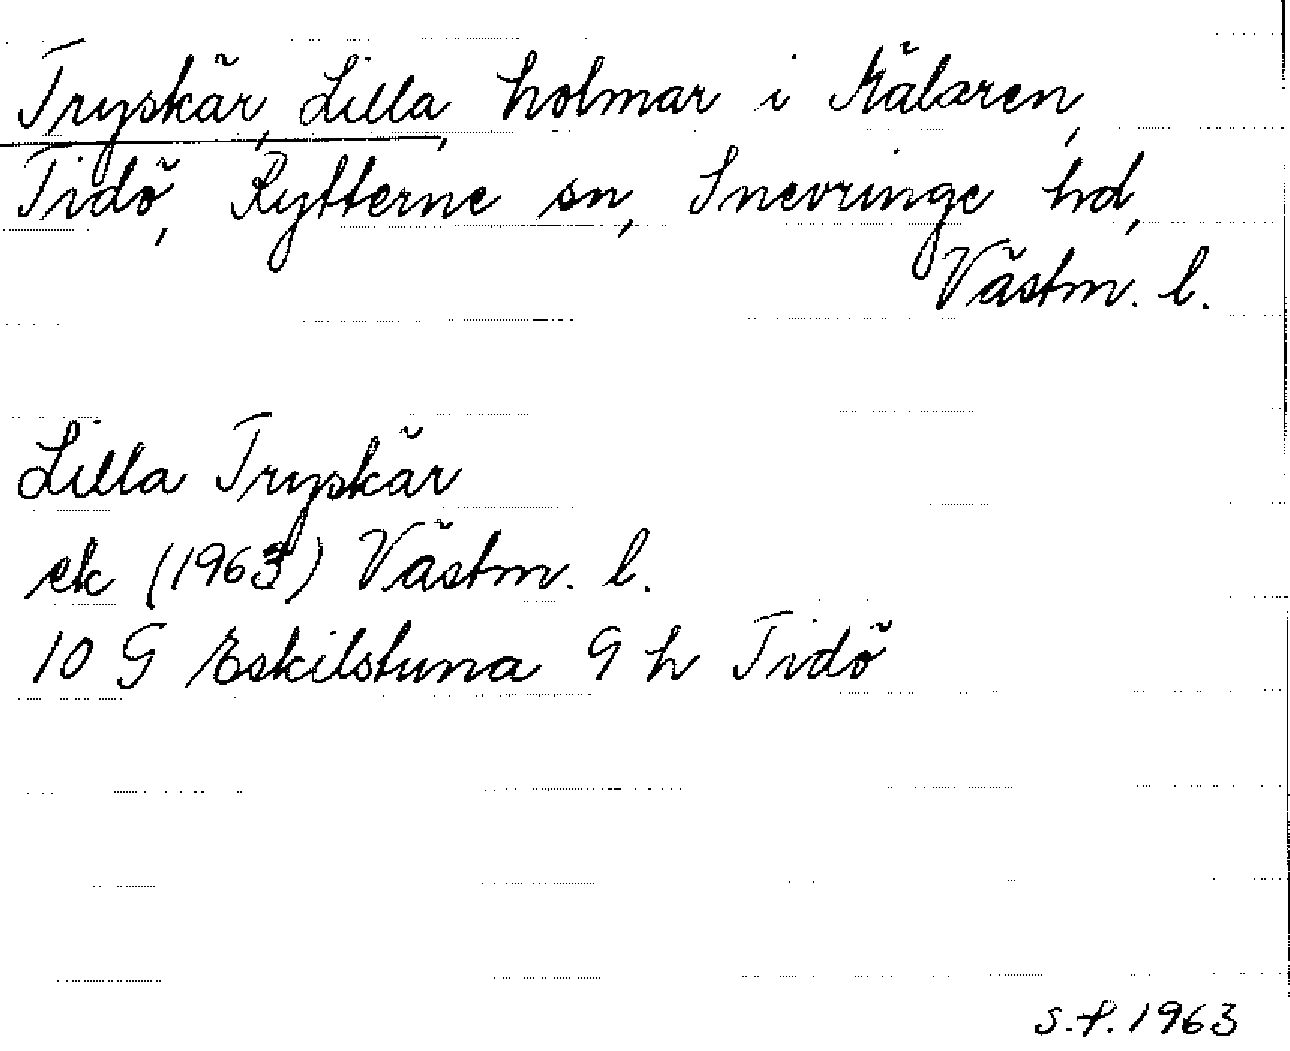 Tryskär, Lilla, holmar i Mälaren,
Tidö, Rytterne sn, Snevringe hd,
Västm. l.
Lilla Tryskär
ek (1963) Västm. l.
10 G Eskilstuna 9 h Tidö
S.F. 1963